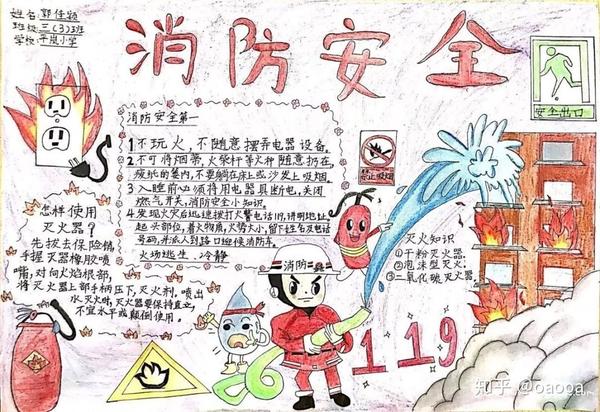 姓名:郭佳颖
班级:三(3)班
学校:平岚小学
消防安全
安全出口
消防安全第一
1不玩火,不随意摆弄电器设备。
2.不可将烟蒂,火柴杆等火种随意扔在,
废纸的篓内,不要躺在床上或沙发上吸烟.
3入睡前必须将用电器具断电,关闭
燃气开关,消防安全小知识.
4发现火灾后迅速拨打火警电话119,讲明地址
起头部位,着火物质,火势大小,留下姓名及电话
号码,并派人到路口迎候消防车.
火场逃生,冷静
禁止吸烟
怎样使用
灭火器?
先拔去保险销,
手握灭器橡胶喷
嘴,对向火焰根部,
将灭火器上部手柄压下,灭火剂,喷出
水灭火时,灭火器要保持直立,
不宜水平或颠倒使用。
灭火知识
①干粉灭火器.
②泡沫型灭火;
③二氧化碳灭火器
消防
119
知乎 @oaooa